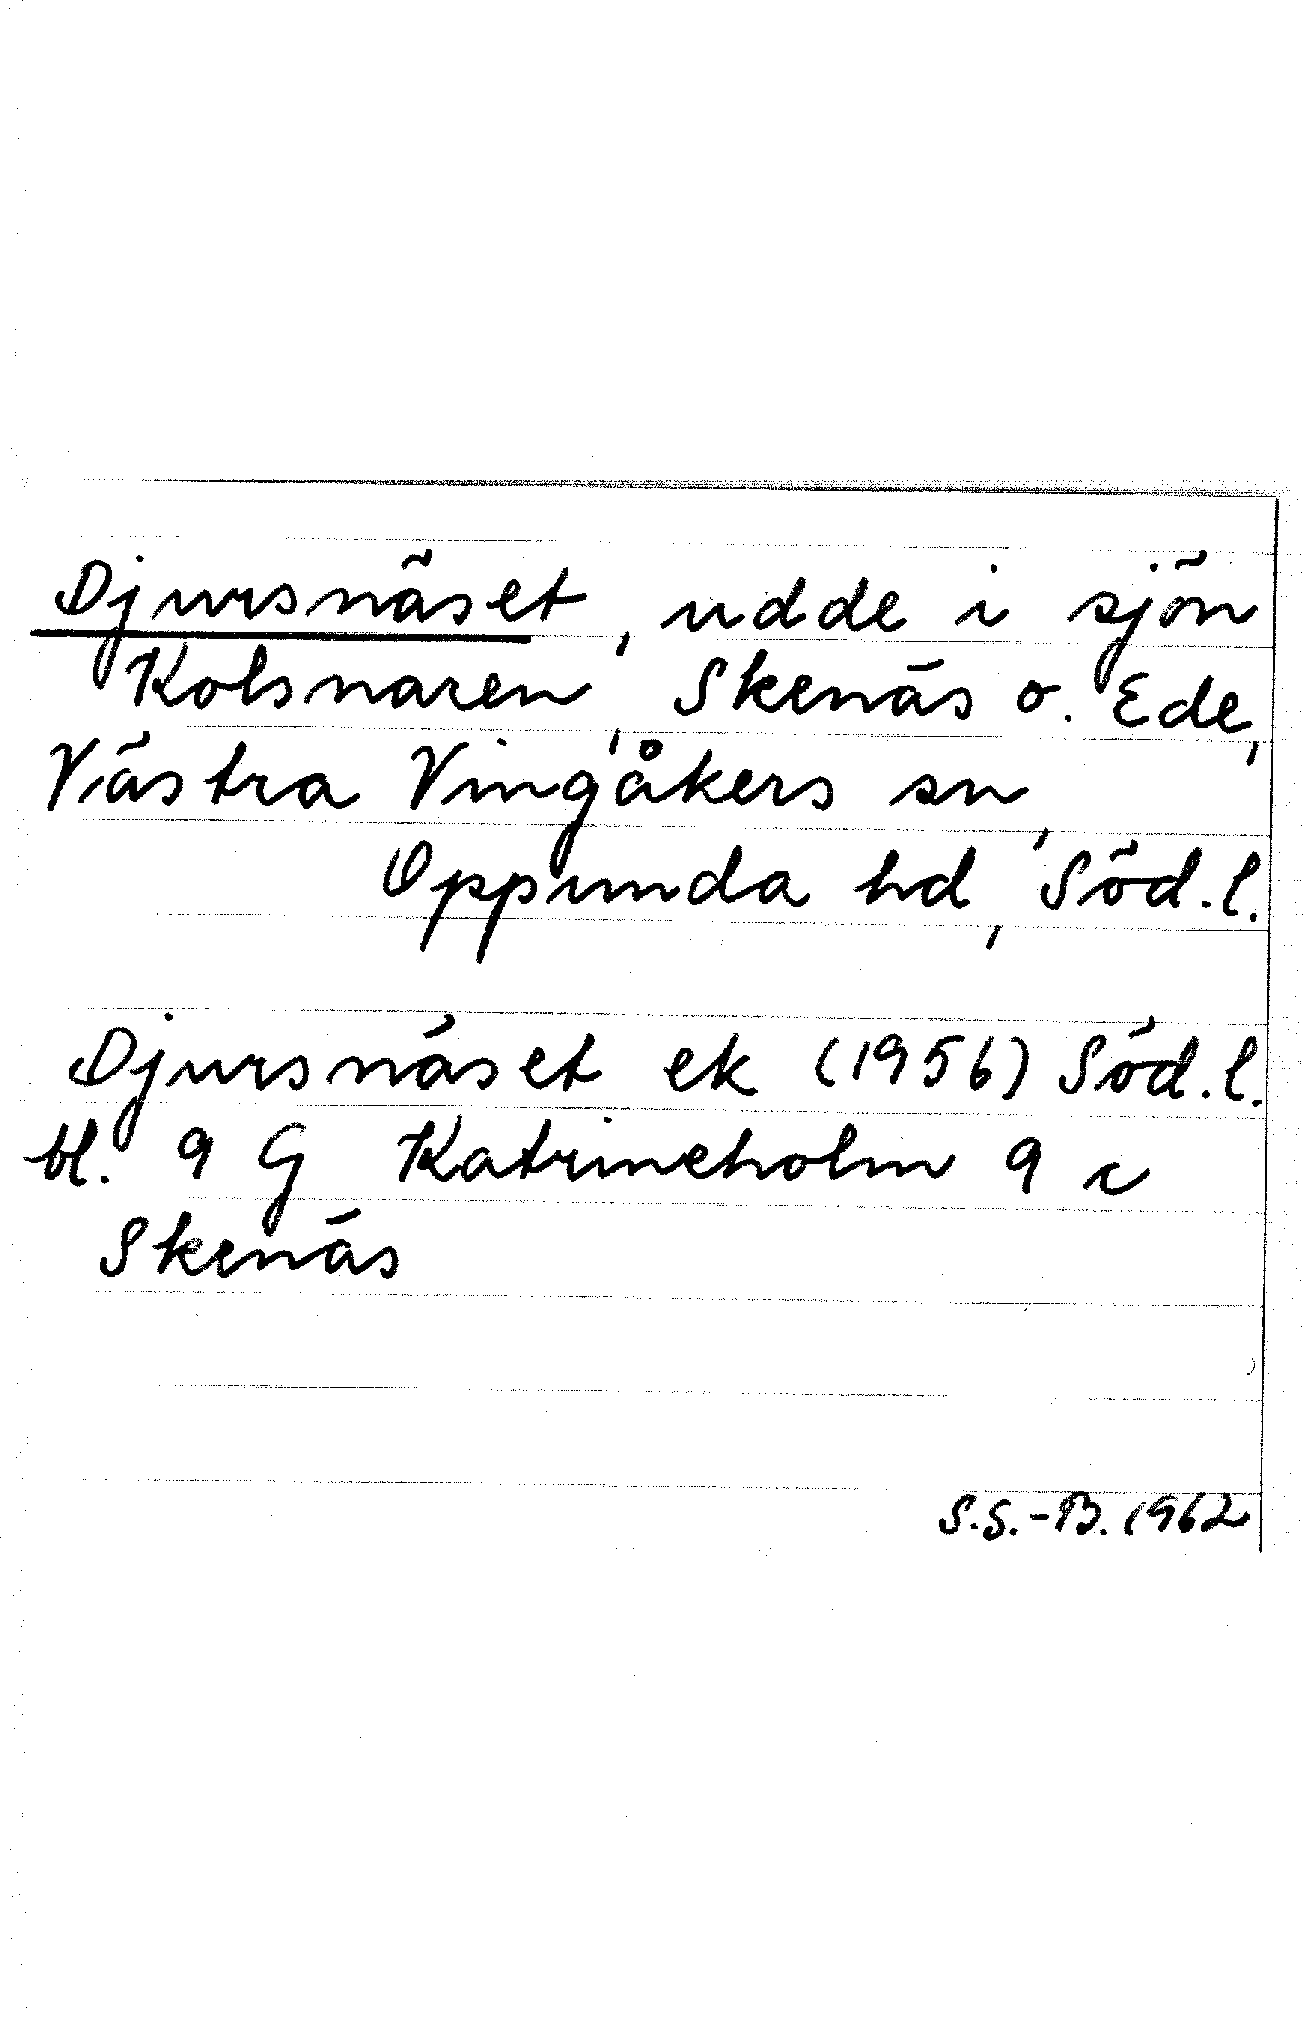 Djursnäset, udde i sjön
Kolsnaren, Skenäs o. Ede,
Västra Vingåkers sn,
Oppunda hd, Söd.l.
Djursnäset ek (1956) Söd.l.
bl. 9 G Katrineholm 9 c
Skenäs
S.S.-B. 1962